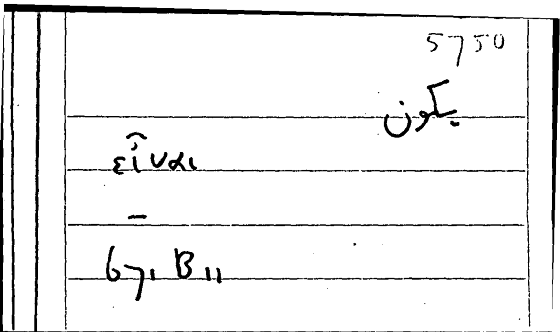 5750
يكون
εἶναι
–
67, B 11